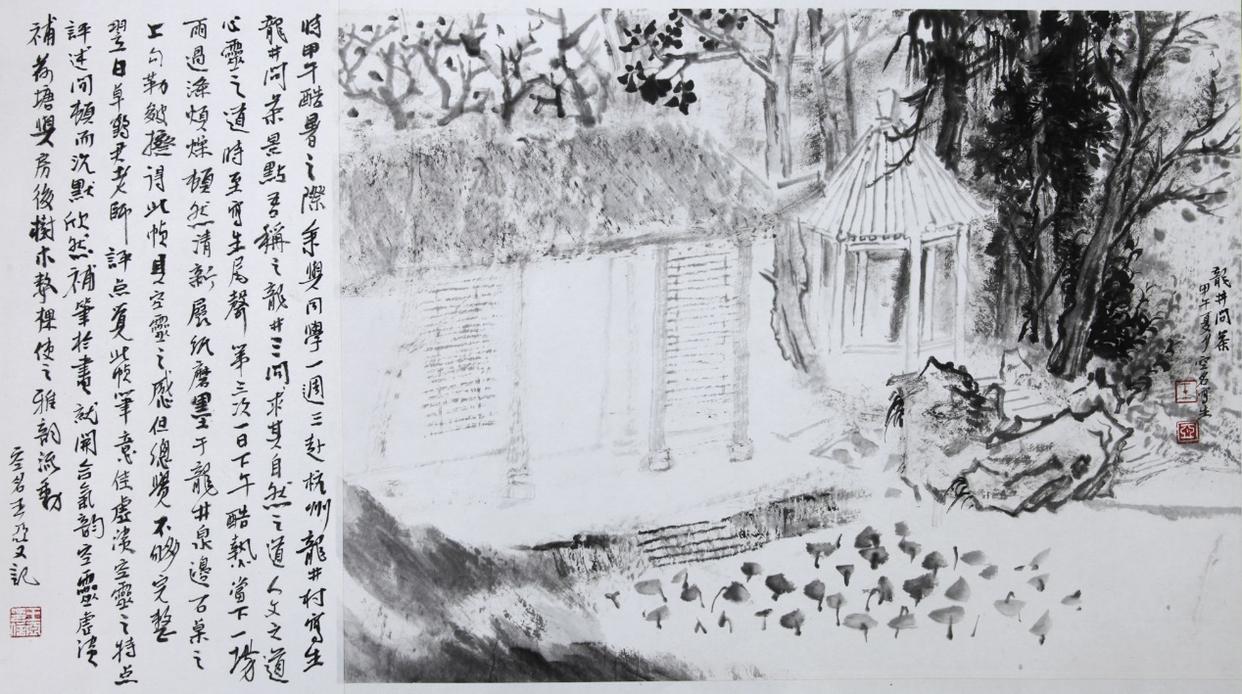 龍井問茶
甲午夏月空名寫生
王
亞
時甲午酷暑之際余與同學一週三赴杭州龍井村寫生
龍井問茶景點吾稱之龍井三問求其自然之道人文之道
心靈之道時至寫生尾聲第三次一日下午酷熱當下一場
雨過滌煩燥頓然清新展紙磨墨于龍井泉邊石桌之
上勾勒皴擦得此幀具空靈之感但總覺不夠完整
翌日卓鶴君老師評点覺此幀筆意佳虛淡空靈之特点
評述间頓而沉默欣然補筆於畫就開合氣韵空靈虛淡
補荷塘與房後樹木整棵使之雅韵流動
空名王亞又記